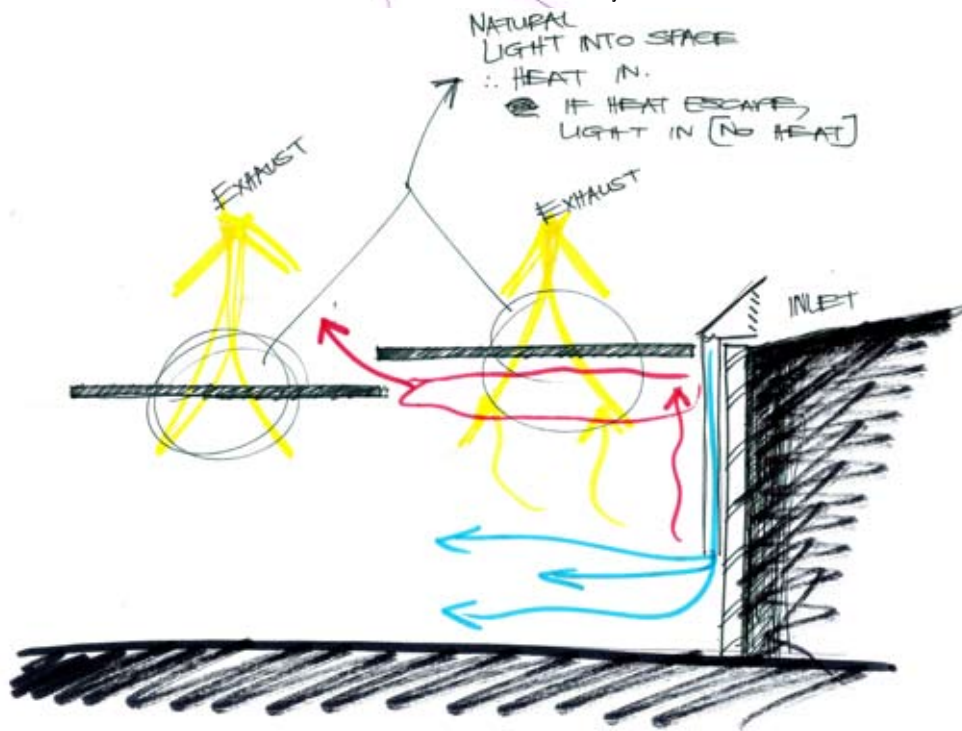 NATURAL
LIGHT INTO SPACE
∴ HEAT IN.
IF HEAT ESCAPE,
LIGHT IN [NO HEAT]
EXHAUST
EXHAUST
INLET